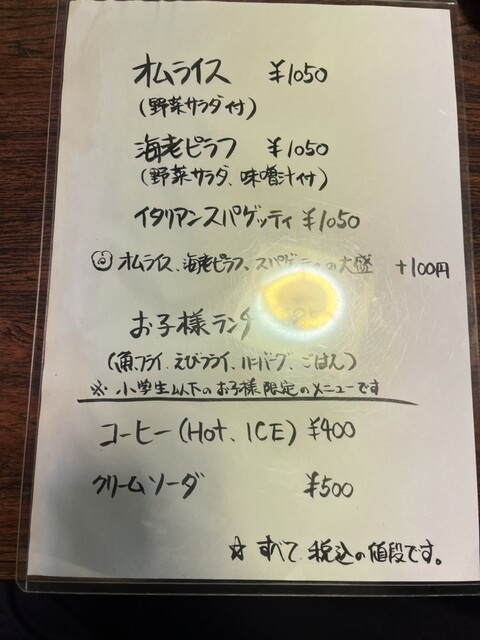 オムライス ¥1050
(野菜サラダ付)
海老ピラフ ¥1050
(野菜サラダ、味噌汁付)
イタリアンスパゲッティ ¥1050
オムライス、海老ピラフ、スパゲティの大盛 +100円
お子様ランチ
(魚フライ、えびフライ、ハンバーグ、ごはん)
※ 小学生以下のお子様限定のメニューです
コーヒー(Hot、ICE) ¥400
クリームソーダ ¥500
☆ すべて 税込の値段です。